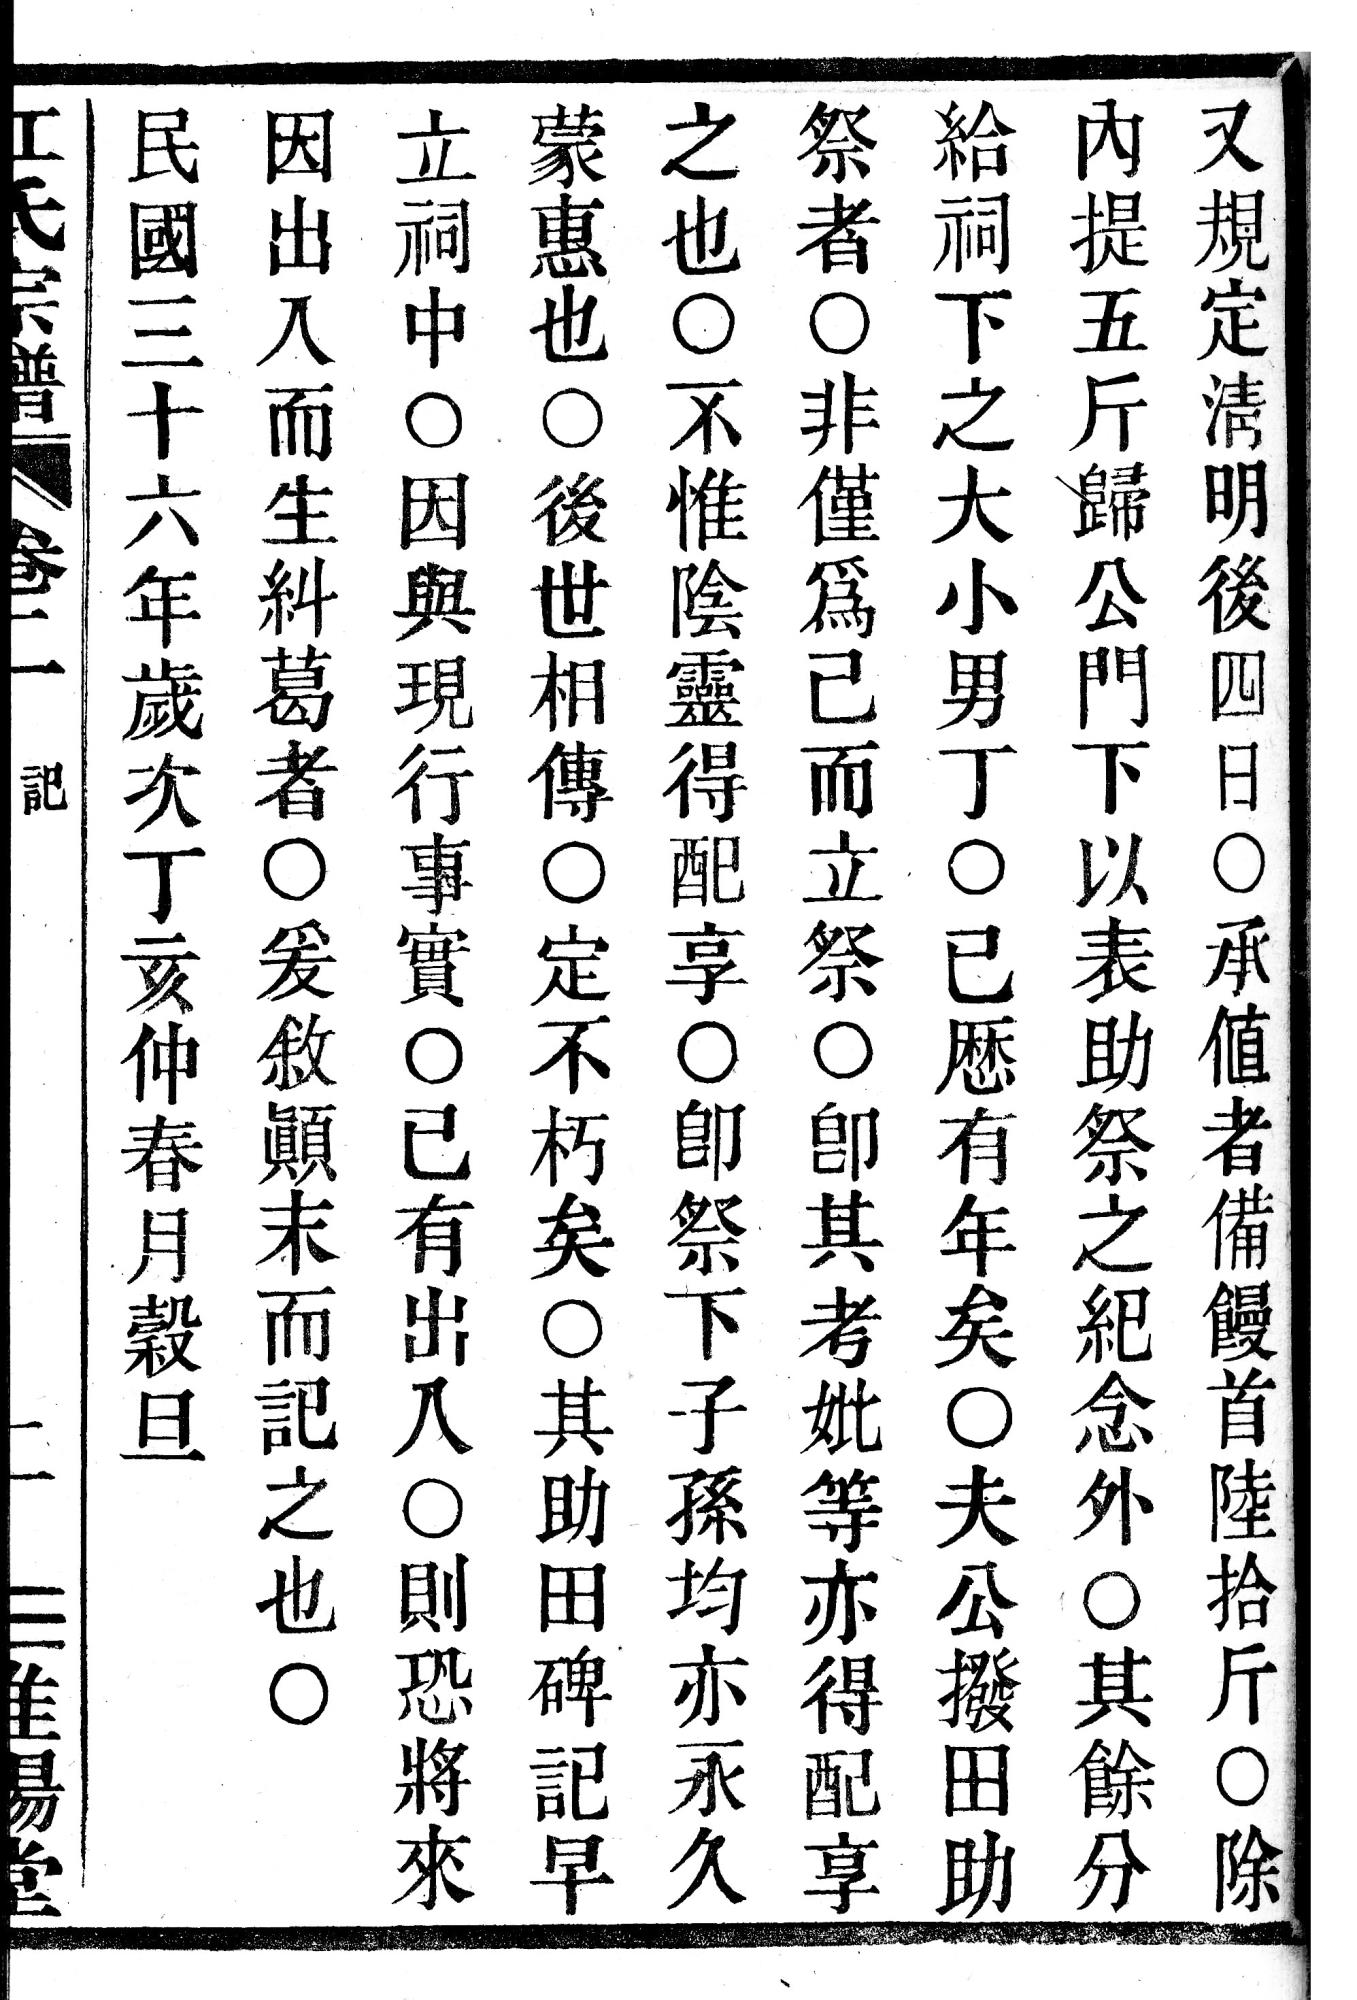 又規定淸明後四日○承値者備饅首陸拾斤○除
內提五斤歸公門下以表助祭之紀念外○其餘分
給祠下之大小男丁○已歴有年矣○夫公撥田助
祭者○非僅爲己而立祭○卽其考妣等亦得配享
之也○不惟陰靈得配享○卽祭下子孫均亦永久
蒙惠也○後世相傳○定不朽矣○其助田碑記早
立祠中○因與現行事實○已有出入○則恐將來
因出入而生糾葛者○爰敘顚末而記之也○
民國三十六年歲次丁亥仲春月穀旦
江氏宗譜 卷二 記 二 三淮陽堂